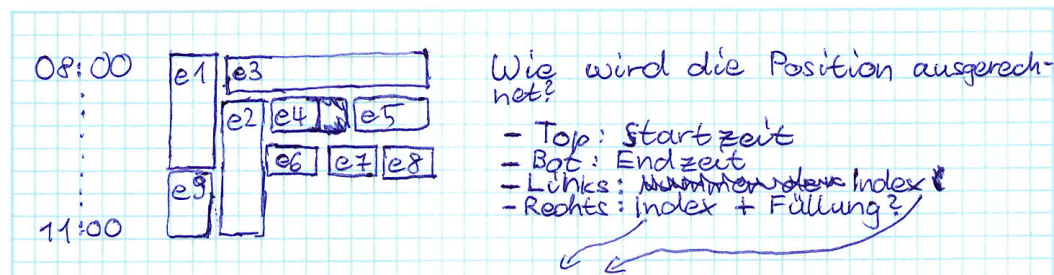 08:00
e1 e3
e2 e4 e5
e6 e7 e8
e9
11:00
Wie wird die Position ausgerech-
net?
- Top: Startzeit
- Bot: Endzeit
- Links: Index
- Rechts: Index + Füllung?